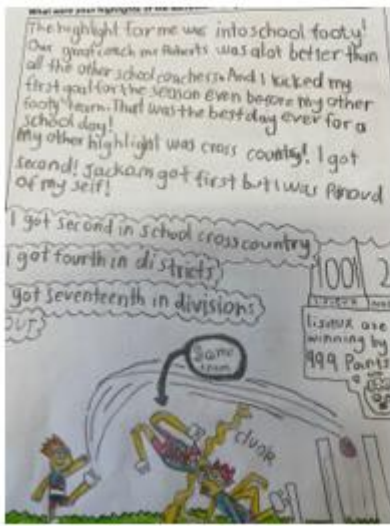 What were your highlights of the
The highlight for me was intoschool footy!
Our great coach mr Roberts was alot better than
all the other school couchers. And I kicked my
first goal for the season even before my other
footy team. That was the best day ever for a
school day!
My other highlight was cross country! I got
second! Jackam got first but I was Proud
of my self!
I got second in school cross country
I got fourth in districts
got seventeenth in divisions
OUT
100
2
Lisieux are
winning by
999 Points
Same
team
clunk